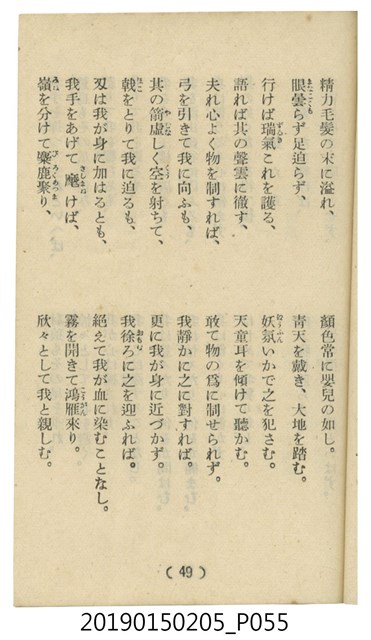 精力毛髮の末に溢れ、
顏色常に嬰兒の如し。
眼曇らず足迫らず、
靑天を戴き、大地を踏む。
行けば瑞氣これを護る、
妖氛いかで之を犯さむ。
語れば其の聲雲に徹す、
天童耳を傾けて聽かむ。
夫れ心よく物を制すれば、
敢て物の爲に制せられず。
弓を引きて我に向ふも、
我靜かに之に對すれば。
其の箭虛しく空を射ちて、
更に我が身に近づかず。
戟をとりて我に迫るも、
我徐ろに之を迎ふれば。
刄は我が身に加はるとも、
絕えて我が血に染むことなし。
我手をあげて麾けば、
霧を開きて鴻雁來り。
嶺を分けて麋鹿聚り、
欣々として我と親しむ。
(49)
20190150205_P055